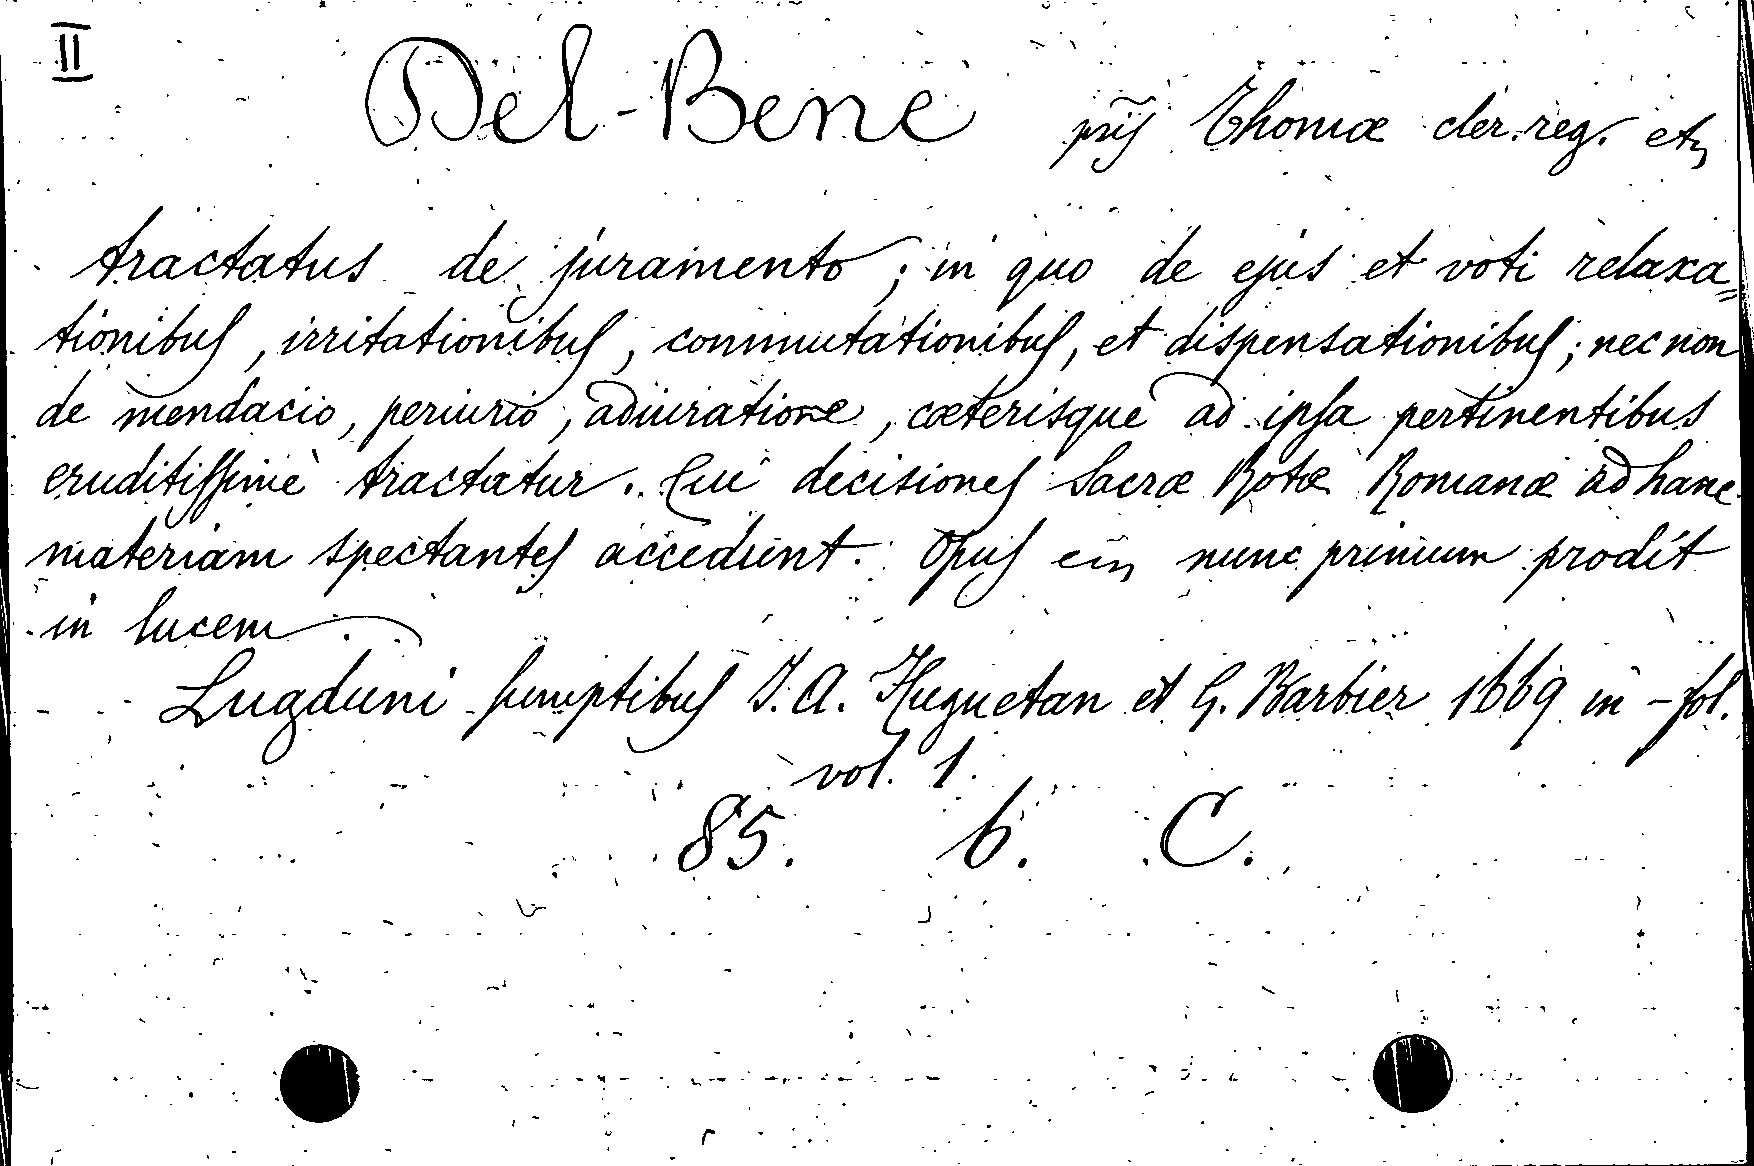 II
Del-Bene prĩs Thomæ cler. reg. etc
tractatus de juramento; in quo de ejus et voti relaxa„
tionibus, irritationibus, commutationibus, et dispensationibus; nec non
de mendacio, periurio, adiuratione, cæterisque ad ipsa pertinentibus
eruditissimè tractatur. Cui decisiones Sacræ Rotæ Romanæ ad hanc
materiam spectantes accedunt. Opus nunc primum prodit
in lucem
Lugduni sumptibus J. A. Huguetan et G. Barbier 1669 in-fol.
vol. 1.
85. 6. C.